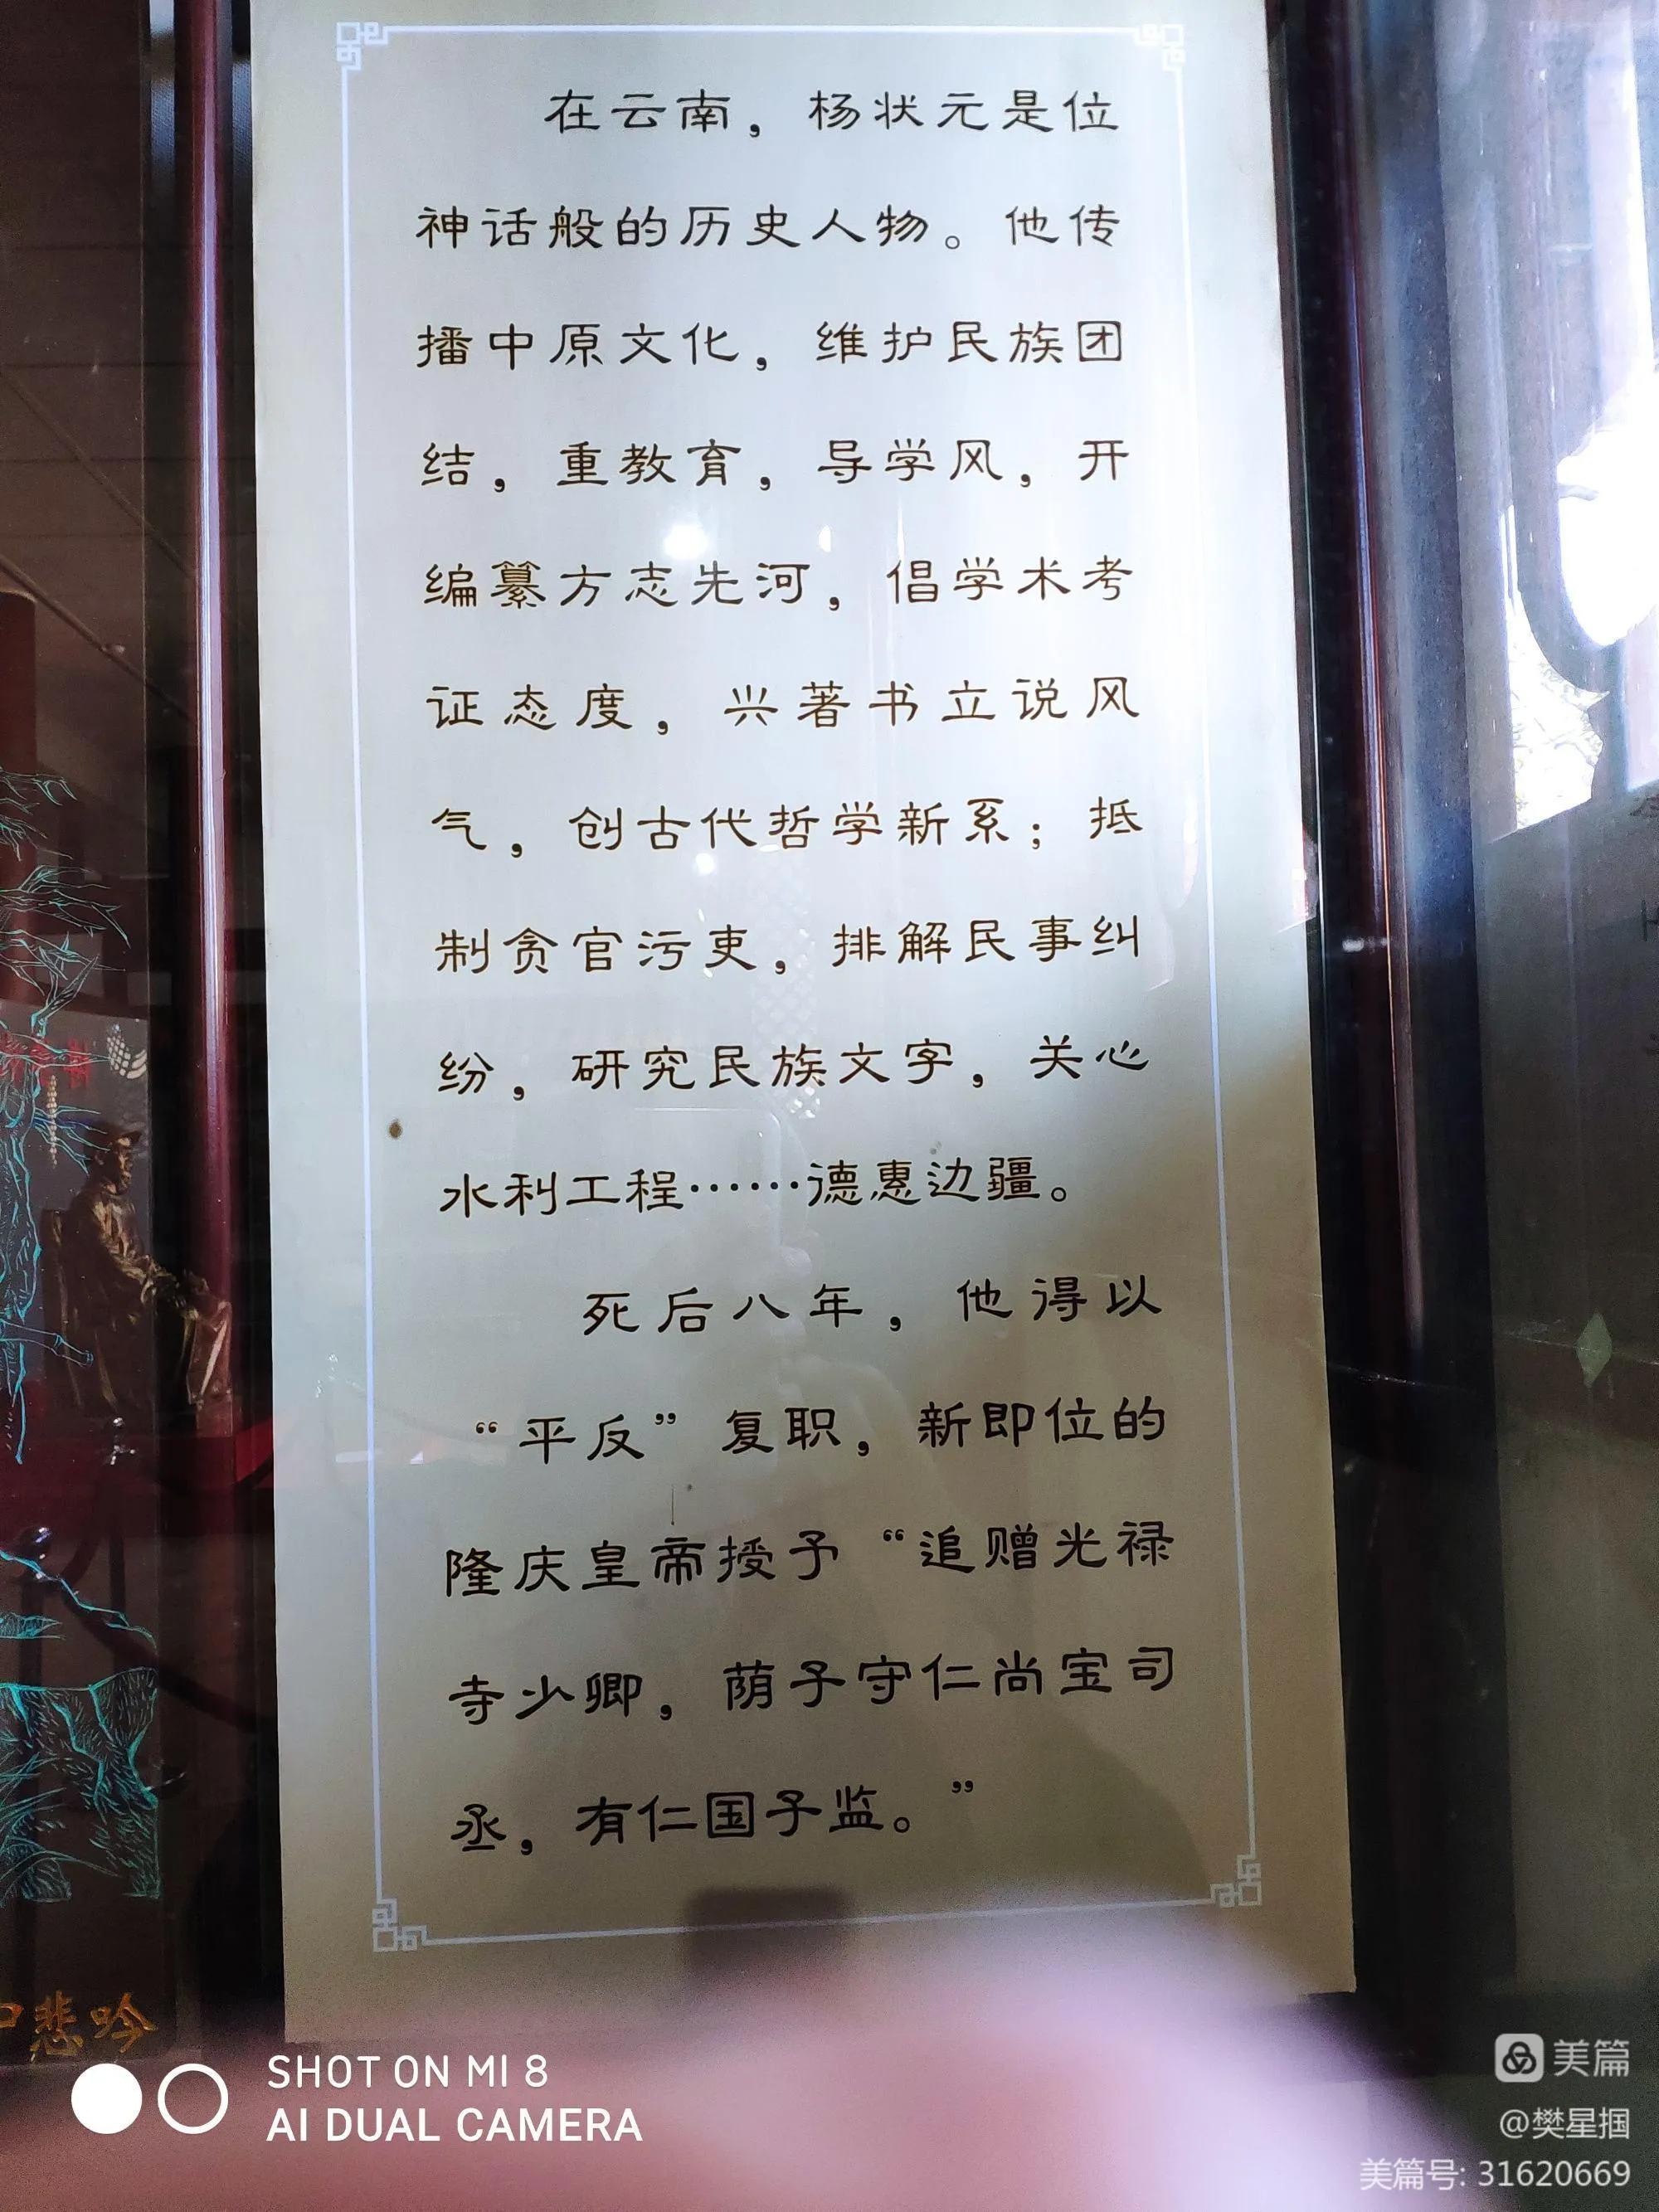 在云南，杨状元是位
神话般的历史人物。他传
播中原文化，维护民族团
结，重教育，导学风，开
编纂方志先河，倡学术考
证态度，兴著书立说风
气，创古代哲学新系；抵
制贪官污吏，排解民事纠
纷，研究民族文字，关心
水利工程……德惠边疆。
死后八年，他得以
“平反”复职，新即位的
隆庆皇帝授予“追赠光禄
寺少卿，荫子守仁尚宝司
丞，有仁国子监。”
悲吟
SHOT ON MI 8
AI DUAL CAMERA
美篇
@樊星掴
美篇号: 31620669